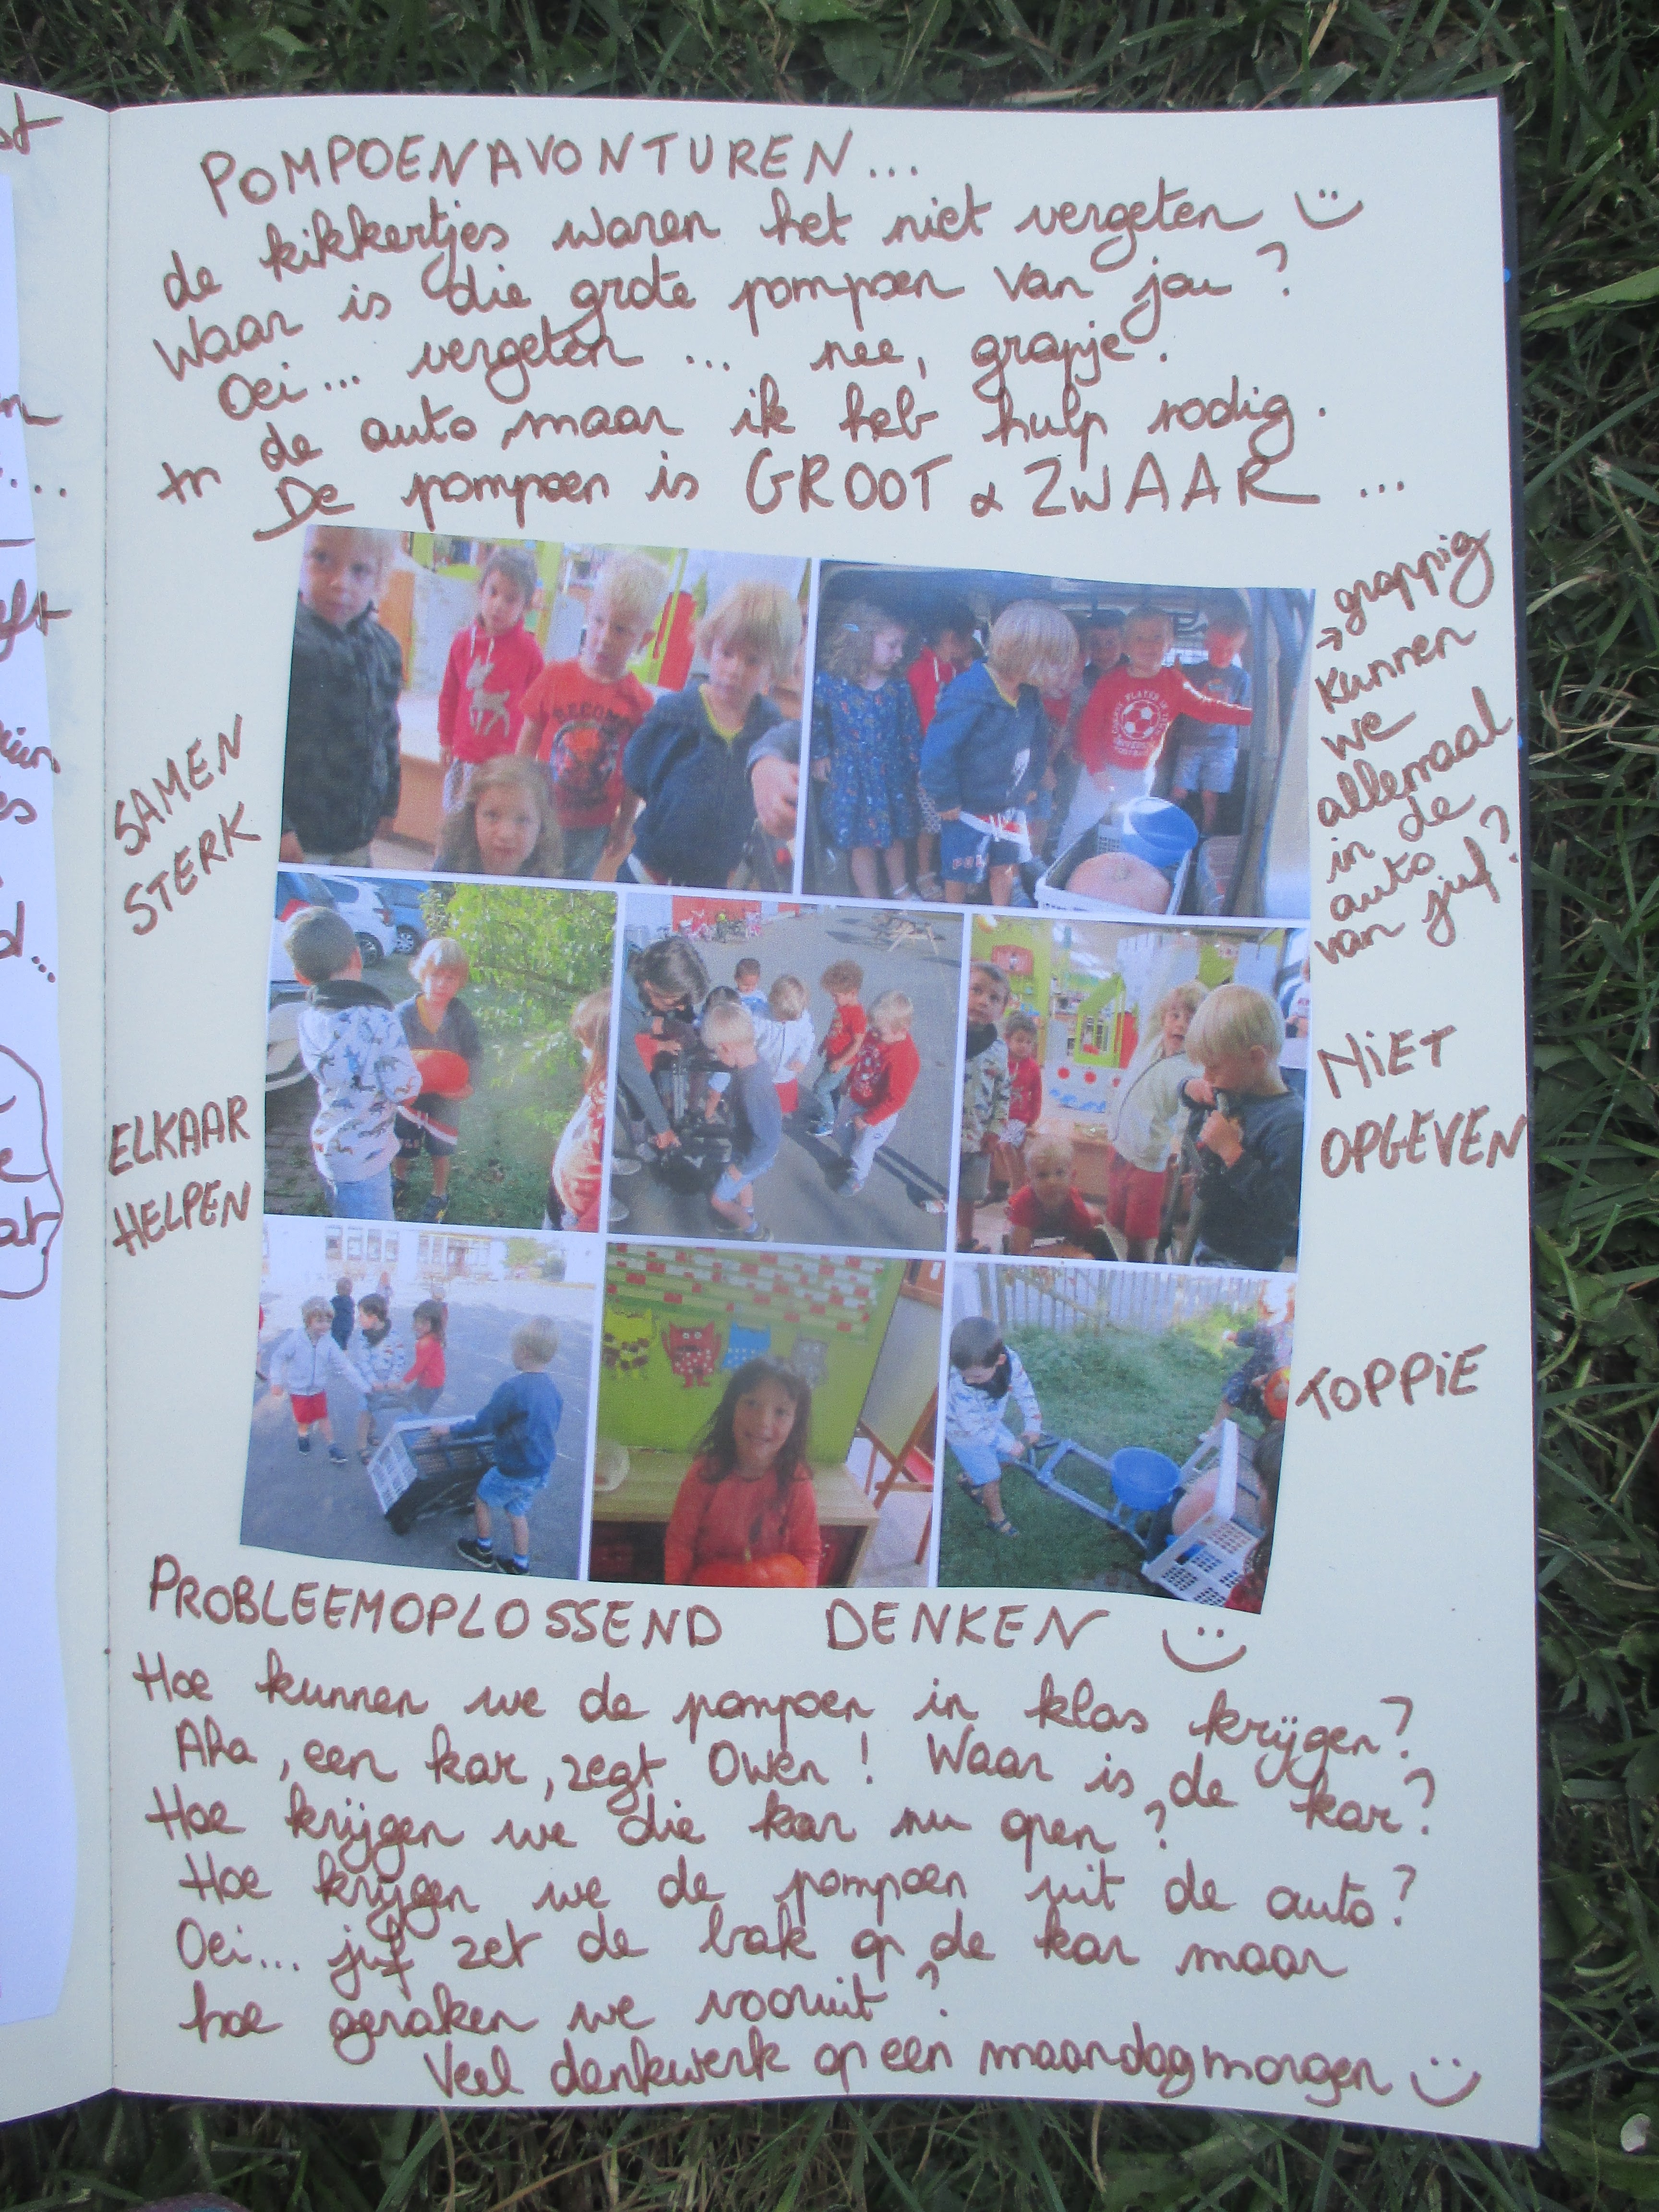 POMPOENAVONTUREN...
de kikkertjes waren het niet vergeten
Waar is die grote pompoen van jou?
Oei... vergeten... nee, grapje.
In de auto, maar ik heb hulp nodig.
De pompoen is GROOT & ZWAAR...
→ grappig
Kunnen
we
allemaal
in de
auto
van juf?
SAMEN
STERK
NIET
OPGEVEN
ELKAAR
HELPEN
TOPPIE
PROBLEEMOPLOSSEND DENKEN
Hoe kunnen we de pompoen in klas krijgen?
Aha, een kar, zegt Owen! Waar is de kar?
Hoe krijgen we die kar nu open?
Hoe krijgen we de pompoen uit de auto?
Oei... juf zet de bak op de kar maar
hoe geraken we vooruit?
Veel denkwerk op een maandagmorgen